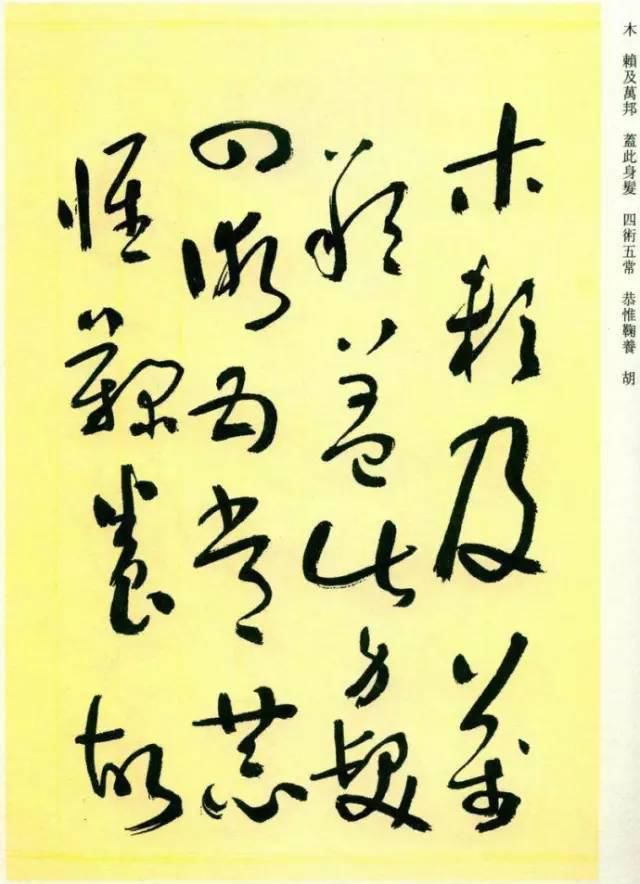 木 賴及萬邦 蓋此身髮 四術五常 恭惟鞠養 胡
木賴及萬
邦蓋此身髮
四術五常恭
惟鞠養胡